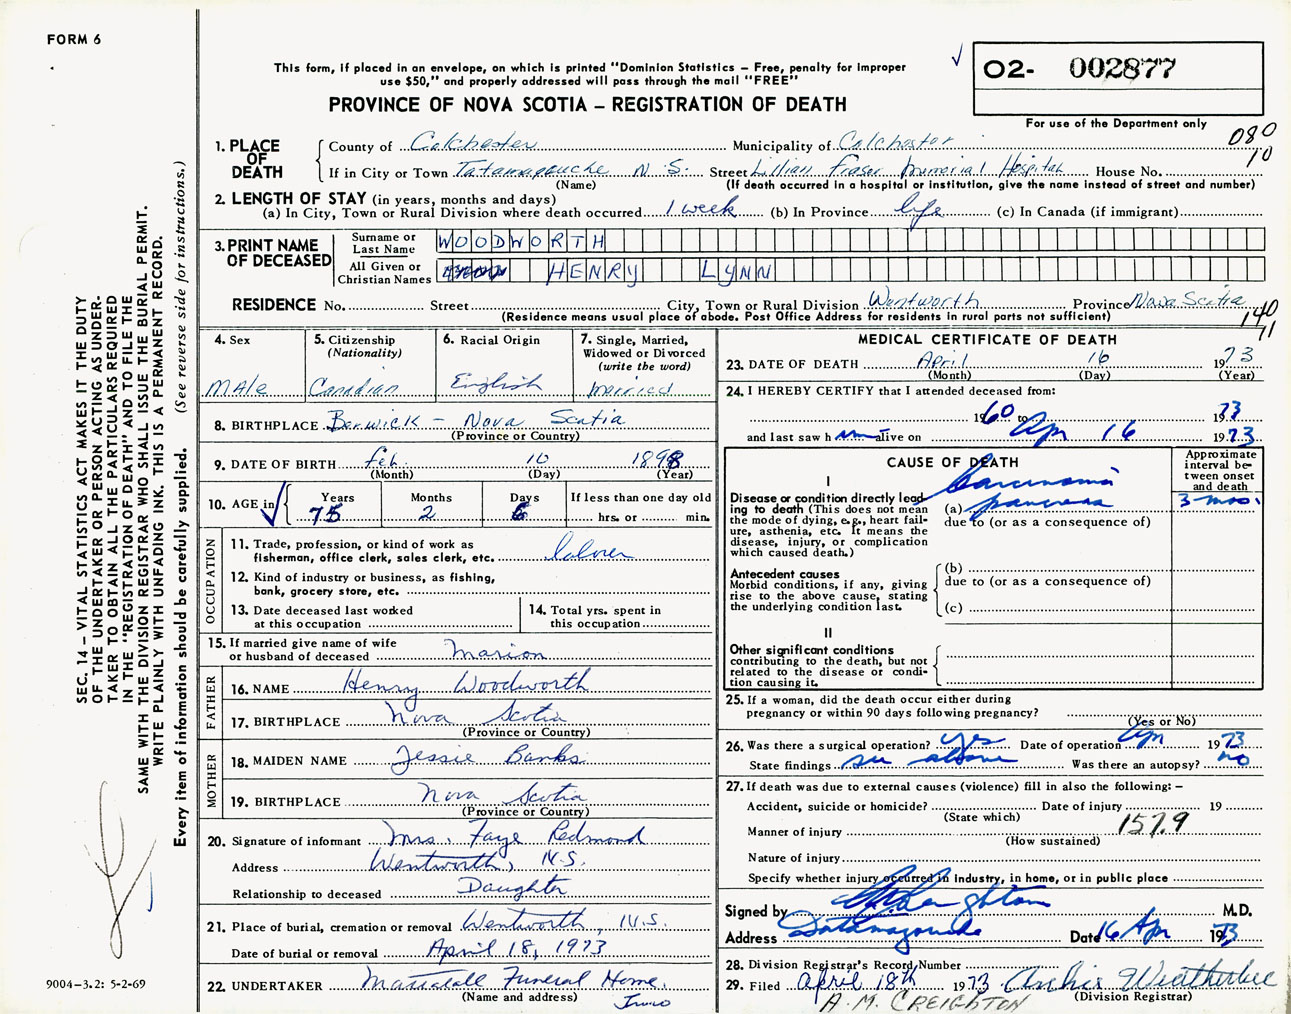 FORM 6
This form, if placed in an envelope, on which is printed "Dominion Statistics – Free, penalty for improper
use $50," and properly addressed will pass through the mail "FREE"
02- 002877
For use of the Department only
PROVINCE OF NOVA SCOTIA – REGISTRATION OF DEATH
080
10
1. PLACE OF DEATH
County of Colchester Municipality of Colchester
If in City or Town Tatamagouche N.S. Street Lillian Fraser Memorial Hospital House No.
(Name) (If death occurred in a hospital or institution, give the name instead of street and number)
2. LENGTH OF STAY (in years, months and days)
(a) In City, Town or Rural Division where death occurred 1 week (b) In Province life (c) In Canada (if immigrant)
3. PRINT NAME OF DECEASED
Surname or Last Name WOODWORTH
All Given or Christian Names HENRY LYNN
RESIDENCE No. Street City, Town or Rural Division Wentworth Province Nova Scotia
(Residence means usual place of abode. Post Office Address for residents in rural parts not sufficient)
140
11
4. Sex Male
5. Citizenship (Nationality) Canadian
6. Racial Origin English
7. Single, Married, Widowed or Divorced (write the word) married
8. BIRTHPLACE Berwick – Nova Scotia
(Province or Country)
9. DATE OF BIRTH Feb. 10 1898
(Month) (Day) (Year)
10. AGE in Years 75 Months 2 Days 6 If less than one day old hrs. or min.
OCCUPATION
11. Trade, profession, or kind of work as
fisherman, office clerk, sales clerk, etc. laborer
12. Kind of industry or business, as fishing,
bank, grocery store, etc.
13. Date deceased last worked
at this occupation
14. Total yrs. spent in
this occupation
15. If married give name of wife
or husband of deceased Marion
FATHER
16. NAME Henry Woodworth
17. BIRTHPLACE Nova Scotia
(Province or Country)
MOTHER
18. MAIDEN NAME Jessie Banks
19. BIRTHPLACE Nova Scotia
(Province or Country)
20. Signature of informant Mrs. Faye Redmond
Address Wentworth, N.S.
Relationship to deceased Daughter
21. Place of burial, cremation or removal Wentworth, N.S.
Date of burial or removal April 18, 1973
22. UNDERTAKER Funeral Home,
(Name and address) Truro
MEDICAL CERTIFICATE OF DEATH
23. DATE OF DEATH April 16 1973
(Month) (Day) (Year)
24. I HEREBY CERTIFY that I attended deceased from:
1960 to Apr 16 1973
and last saw h im alive on 1973
CAUSE OF DEATH
Approximate interval between onset and death
I
Disease or condition directly lead-
ing to death (This does not mean
the mode of dying, e.g., heart fail-
ure, asthenia, etc. It means the
disease, injury, or complication
which caused death.)
(a) Carcinoma pancreas 3 mos.
due to (or as a consequence of)
Antecedent causes
Morbid conditions, if any, giving
rise to the above cause, stating
the underlying condition last.
(b)
due to (or as a consequence of)
(c)
II
Other significant conditions
contributing to the death, but not
related to the disease or condi-
tion causing it.
25. If a woman, did the death occur either during
pregnancy or within 90 days following pregnancy?
(Yes or No)
26. Was there a surgical operation? yes Date of operation Apr 1973
State findings see above Was there an autopsy? no
27. If death was due to external causes (violence) fill in also the following: –
Accident, suicide or homicide? Date of injury 19
(State which)
Manner of injury 157.9
(How sustained)
Nature of injury
Specify whether injury occurred in industry, in home, or in public place
Signed by Creighton M.D.
Address Tatamagouche Date 16 Apr 1973
28. Division Registrar's Record Number
29. Filed April 18th 1973 Archie Weatherbee
(Division Registrar)
A. M. CREIGHTON
SEC. 14 – VITAL STATISTICS ACT MAKES IT THE DUTY
OF THE UNDERTAKER OR PERSON ACTING AS UNDER-
TAKER TO OBTAIN ALL THE PARTICULARS REQUIRED
IN THE "REGISTRATION OF DEATH" AND TO FILE THE
SAME WITH THE DIVISION REGISTRAR WHO SHALL ISSUE THE BURIAL PERMIT.
WRITE PLAINLY WITH UNFADING INK. THIS IS A PERMANENT RECORD.
Every item of information should be carefully supplied. (See reverse side for instructions.)
9004-3.2: 5-2-69